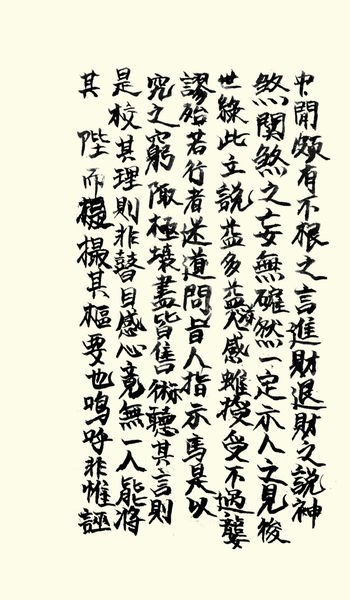 中間頗有不根之言進財退財之說神
煞關煞之妄無確然一定示人之見後
世緣此立說益多益感雖授受不過襲
謬殆若行者迷道問盲人指示焉是以
究之窮陬極壤盡皆售術聽其言則
是校其理則非瞽目感心竟無一人能將
其陛而撮其樞要也嗚呼非惟誣